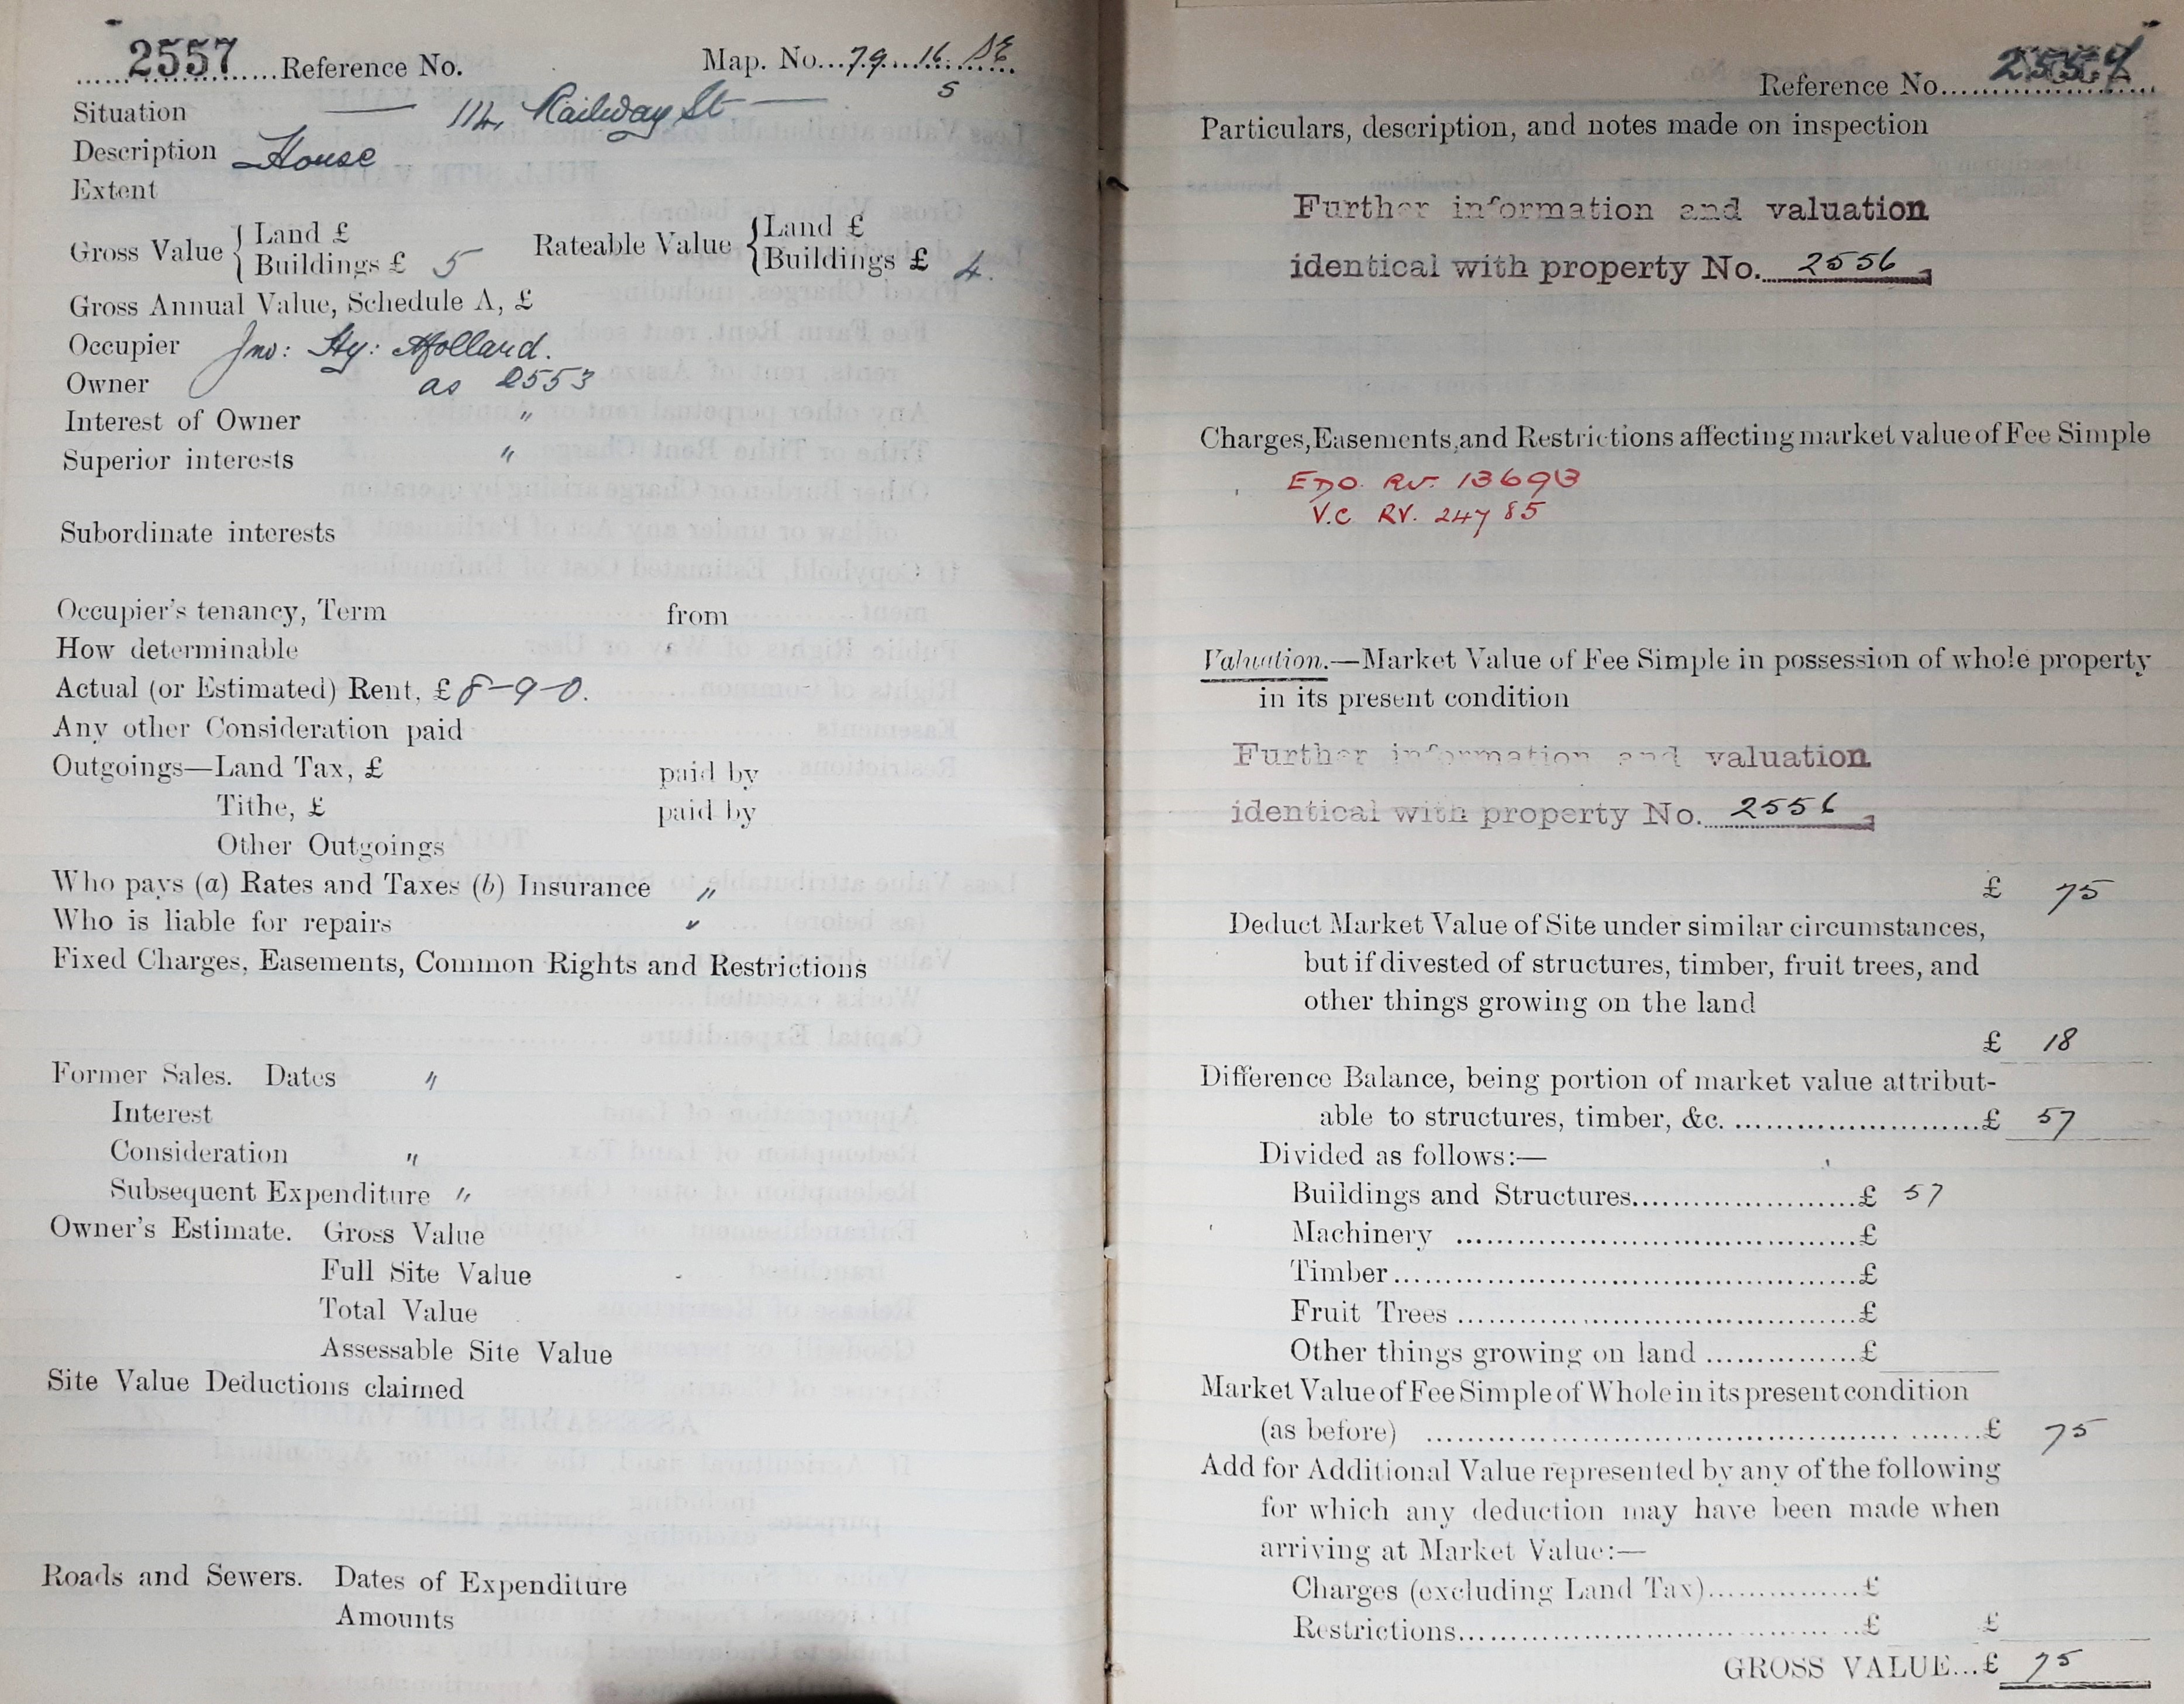 2557 Reference No. Map. No. 79. 16. SE
5
Situation — 114, Railway St —
Description House
Extent
Gross Value { Land £ Rateable Value { Land £
Buildings £ 5 Buildings £ 4.
Gross Annual Value, Schedule A, £
Occupier Jno: Hy: Holland.
Owner as 2553
Interest of Owner "
Superior interests "
Subordinate interests
Occupier's tenancy, Term from
How determinable
Actual (or Estimated) Rent, £ 8-9-0.
Any other Consideration paid
Outgoings—Land Tax, £ paid by
Tithe, £ paid by
Other Outgoings
Who pays (a) Rates and Taxes (b) Insurance "
Who is liable for repairs "
Fixed Charges, Easements, Common Rights and Restrictions
Former Sales. Dates "
Interest
Consideration "
Subsequent Expenditure "
Owner's Estimate. Gross Value
Full Site Value
Total Value
Assessable Site Value
Site Value Deductions claimed
Roads and Sewers. Dates of Expenditure
Amounts
Reference No.
Particulars, description, and notes made on inspection
Further information and valuation
identical with property No. 2556
Charges, Easements, and Restrictions affecting market value of Fee Simple
EDO. RV. 13693
V.C RV. 24785
Valuation.—Market Value of Fee Simple in possession of whole property
in its present condition
Further information and valuation
identical with property No. 2556
£ 75
Deduct Market Value of Site under similar circumstances,
but if divested of structures, timber, fruit trees, and
other things growing on the land
£ 18
Difference Balance, being portion of market value attribut-
able to structures, timber, &c. £ 57
Divided as follows:—
Buildings and Structures £ 57
Machinery £
Timber £
Fruit Trees £
Other things growing on land £
Market Value of Fee Simple of Whole in its present condition
(as before) £ 75
Add for Additional Value represented by any of the following
for which any deduction may have been made when
arriving at Market Value:—
Charges (excluding Land Tax) £
Restrictions £ £
GROSS VALUE... £ 75